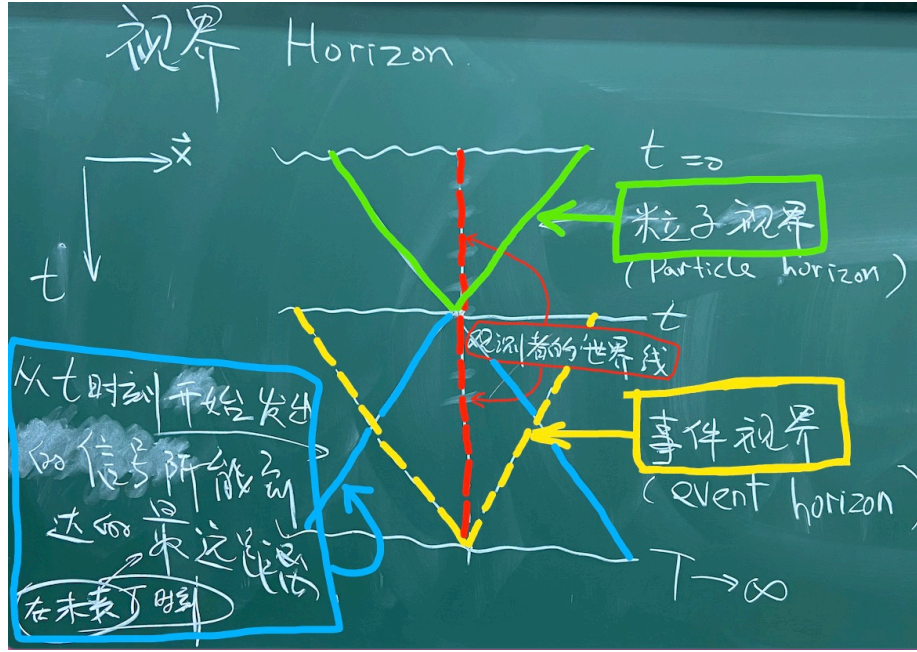 视界 Horizon
x⃗
t
t=0
粒子视界
(particle horizon)
t
观测者的世界线
事件视界
(event horizon)
从t时刻开始发出
的信号所能到
达的最远
在未来T时刻
T→∞